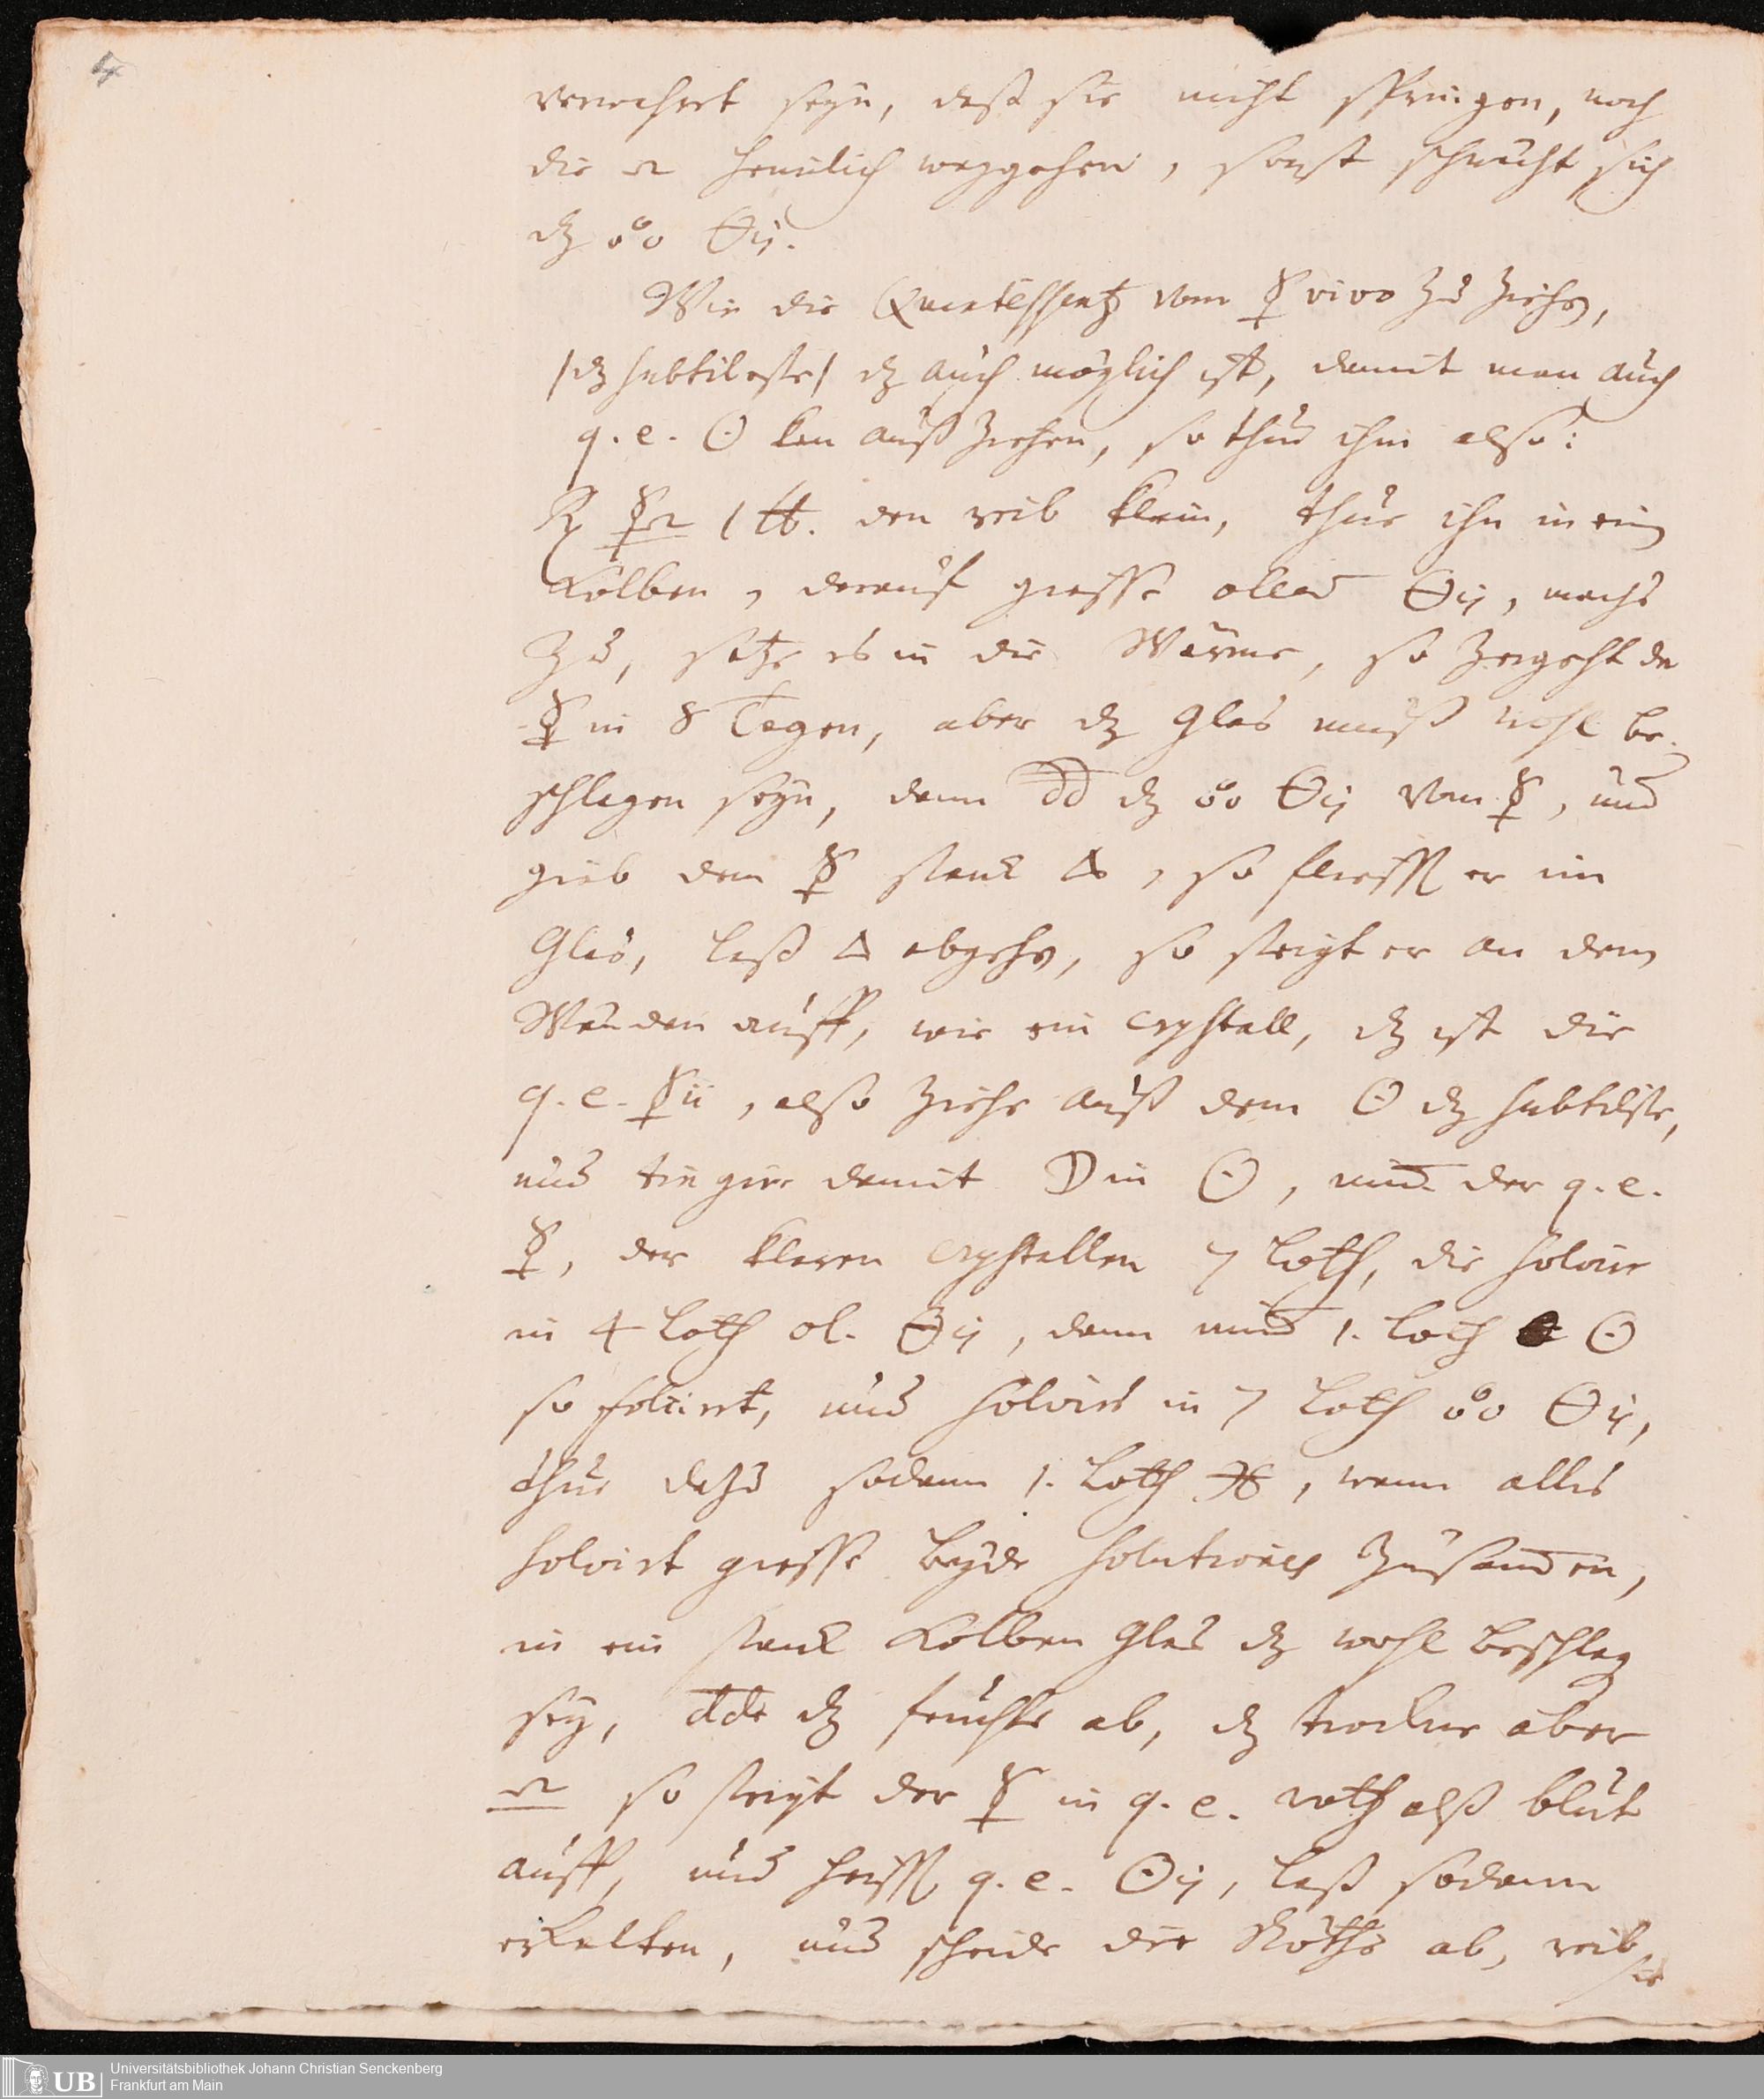 4
verwahret seyn, daß sie nicht springen, noch
die ♎ heimlich weggehen, sonst schwächt sich
dz o°o 🜖ij.
Wie die Quintessentz vom ☿ vivo zu ziehen,
/dz subtileste/ dz auch möglich ist, damit man auch
q. e. ☉ kan auß ziehen, so thu ihm also:
℞ ☿♎ 1 ℔. den reib klein, thue ihn in ein
Kolben, darauf giesse oleū 🜖ij, machs
zu, setze es in die Wärme, so zergeht der
☿ in 8 Tagen, aber dz Glas muß wohl be-
schlagen seyn, dann dd dz o°o 🜖ij vom ☿, und
gieb dem ☿ starck △, so fliesst er im
Glas, laß △ abgehen, so steigt er an den
Wänden auff, wie ein crystall, dz ist die
q. e. ☿ii, also ziehe auß dem ☉ dz subtilste,
und tingire damit ☽ in ☉, nim̄ der q. e.
☿, der klaren crystallen 7 Loth, die solvir
in 4 Loth ol. 🜖ij, dann nim̄ 1. Loth ☉
so foliirt, und solvirs in 7 Loth o°o 🜖ij,
thue dazu sodann 1. Loth ✱, wann alles
solvirt giesse beyde solutiones zusam̄en,
in ein starck Kolben Glas dz wohl beschlag
sey, ddr dz feuchte ab, dz trockne aber
♎ so steigt der ☿ in q. e. roth alß blut
auff, und heisst q. e. ☉ij, laß sodann
erkalten, und scheide die Röthe ab, reib
sie
Universitätsbibliothek Johann Christian Senckenberg
Frankfurt am Main
UB